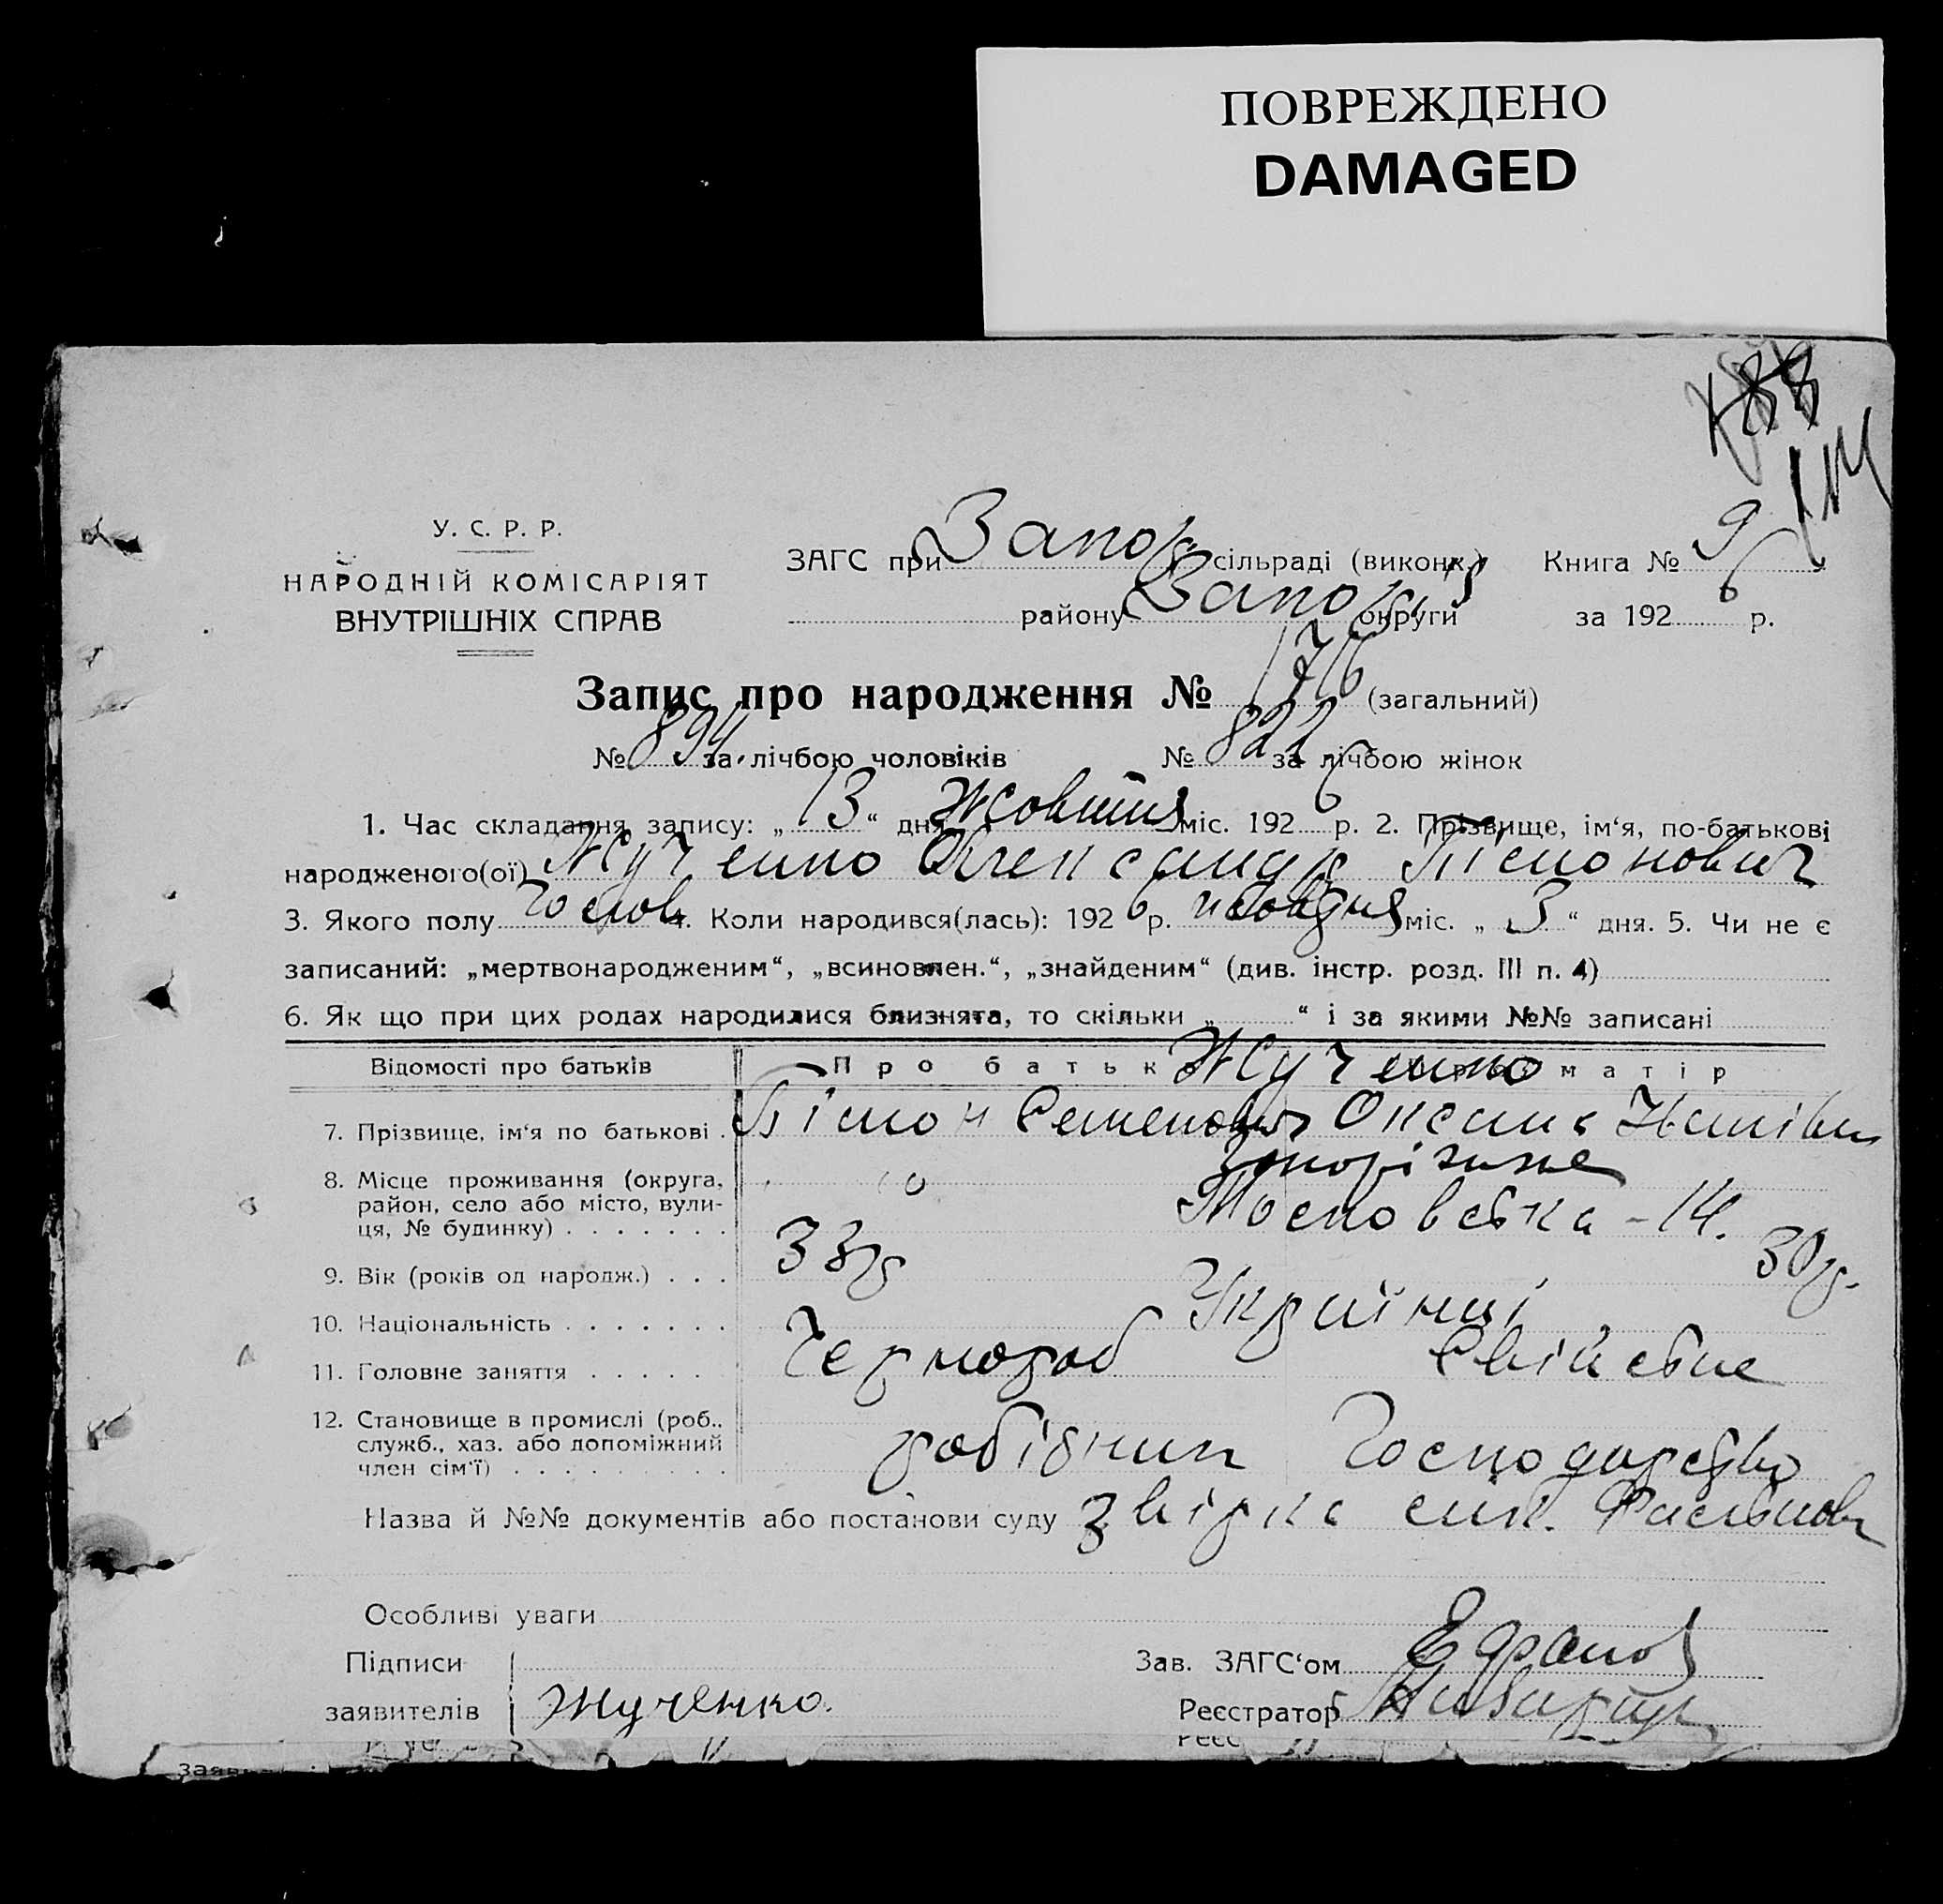 ПОВРЕЖДЕНО
DAMAGED
У. С. Р. Р.
НАРОДНІЙ КОМІСАРІЯТ
ВНУТРІШНІХ СПРАВ
ЗАГС при Запор. сільраді (виконк.) Книга № 9
району Запор. округи за 1926 р.
Запис про народження № 1716 (загальний)
№ 894 за лічбою чоловіків № 822 за лічбою жінок
1. Час складання запису: „13“ дня Жовтня міс. 1926 р. 2. Прізвище, ім‘я, по-батькові
народженого(ої) Жученко Олександр Пімонович
3. Якого полу Чолов 4. Коли народився(лась): 1926 р. Жовтня міс. „3“ дня. 5. Чи не є
записаний: „мертвонародженим“, „всиновлен.“, „знайденим“ (див. інстр. розд. III п. 4)
6. Як що при цих родах народилися близнята, то скільки „ “ і за якими №№ записані
Відомості про батьків Про батька Жученко матір
7. Прізвище, ім‘я по батькові Пімон Семенович Оксана
8. Місце проживання (округа, Запоріжже
район, село або місто, вули- Московська - 14.
ця, № будинку)
9. Вік (років од народж.) 33 р 30 р.
10. Національність Українці
11. Головне заняття Чернороб Свійське
12. Становище в промислі (роб., робідник Господарство
служб., хаз. або допоміжний
член сім‘ї)
Назва й №№ документів або постанови суду Звірка
Особливі уваги
Підписи Зав. ЗАГС‘ом
заявителів Жученко. Реєстратор